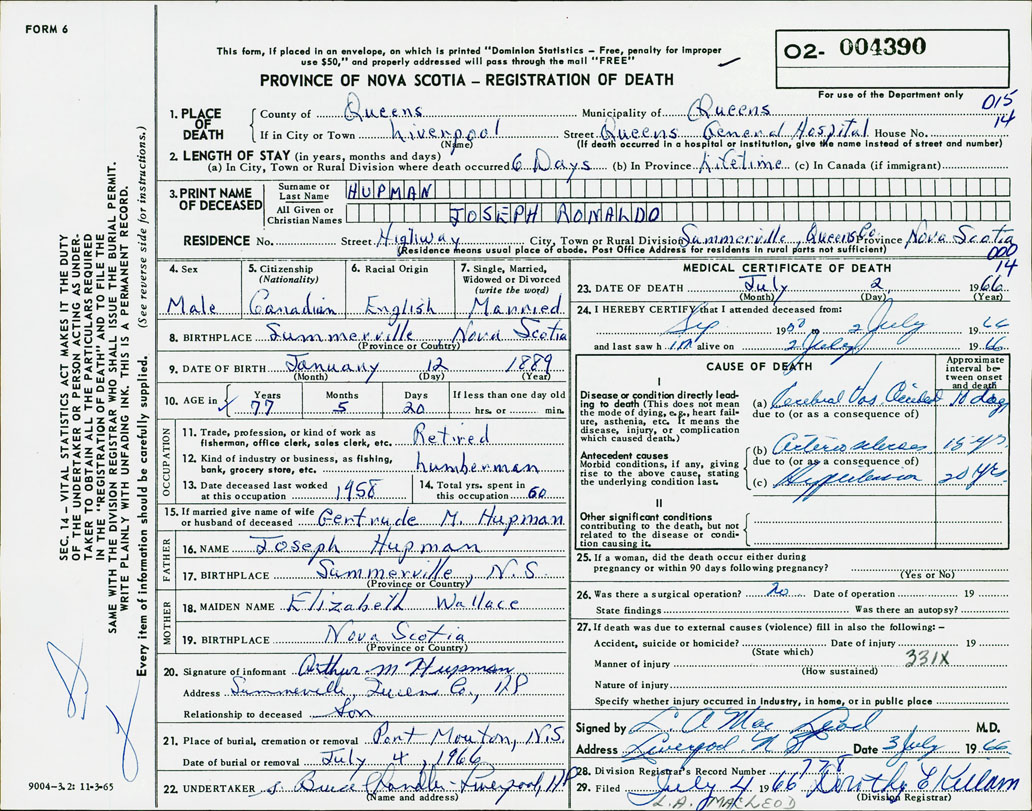 FORM 6
This form, if placed in an envelope, on which is printed "Dominion Statistics – Free, penalty for improper
use $50," and properly addressed will pass through the mail "FREE"
PROVINCE OF NOVA SCOTIA – REGISTRATION OF DEATH
O2- 004390
For use of the Department only
015
14
1. PLACE OF DEATH
County of Queens Municipality of Queens
If in City or Town Liverpool Street Queens General Hospital House No.
(Name) (If death occurred in a hospital or institution, give the name instead of street and number)
2. LENGTH OF STAY (in years, months and days)
(a) In City, Town or Rural Division where death occurred 6 Days (b) In Province Lifetime (c) In Canada (if immigrant)
3. PRINT NAME OF DECEASED
Surname or Last Name HUPMAN
All Given or Christian Names JOSEPH RONALDO
RESIDENCE No. Street Highway City, Town or Rural Division Summerville Queens Co. Province Nova Scotia
(Residence means usual place of abode. Post Office Address for residents in rural parts not sufficient)
000
14
4. Sex Male
5. Citizenship (Nationality) Canadian
6. Racial Origin English
7. Single, Married, Widowed or Divorced (write the word) Married
8. BIRTHPLACE Summerville Nova Scotia
(Province or Country)
9. DATE OF BIRTH January 12 1889
(Month) (Day) (Year)
10. AGE in Years 77 Months 5 Days 20 If less than one day old hrs. or min.
OCCUPATION
11. Trade, profession, or kind of work as fisherman, office clerk, sales clerk, etc. Retired
12. Kind of industry or business, as fishing, bank, grocery store, etc. Lumberman
13. Date deceased last worked at this occupation 1958
14. Total yrs. spent in this occupation 60
15. If married give name of wife or husband of deceased Gertrude M. Hupman
FATHER
16. NAME Joseph Hupman
17. BIRTHPLACE Summerville, N.S
(Province or Country)
MOTHER
18. MAIDEN NAME Elizabeth Wallace
19. BIRTHPLACE Nova Scotia
(Province or Country)
20. Signature of informant Arthur M Hupman
Address Summerville, Queens Co., NS
Relationship to deceased Son
21. Place of burial, cremation or removal Port Mouton, N.S.
Date of burial or removal July 4, 1966
22. UNDERTAKER Bruce Chandler Liverpool, NS
(Name and address)
MEDICAL CERTIFICATE OF DEATH
23. DATE OF DEATH July 2 1966
(Month) (Day) (Year)
24. I HEREBY CERTIFY that I attended deceased from:
19 2 July 1966
and last saw h im alive on 2 July 1966
CAUSE OF DEATH
Approximate interval between onset and death
I
Disease or condition directly leading to death (This does not mean the mode of dying, e.g., heart failure, asthenia, etc. It means the disease, injury, or complication which caused death.)
(a) Cerebral Vas Accident 10 days
due to (or as a consequence of)
Antecedent causes
Morbid conditions, if any, giving rise to the above cause, stating the underlying condition last.
(b) Arteriosclerosis 15 yrs
due to (or as a consequence of)
(c) Hypertension 20 yrs.
II
Other significant conditions contributing to the death, but not related to the disease or condition causing it.
25. If a woman, did the death occur either during pregnancy or within 90 days following pregnancy?
(Yes or No)
26. Was there a surgical operation? no Date of operation 19
State findings Was there an autopsy?
27. If death was due to external causes (violence) fill in also the following: –
Accident, suicide or homicide? Date of injury 19
(State which)
Manner of injury 331X
(How sustained)
Nature of injury
Specify whether injury occurred in Industry, in home, or in public place
Signed by L A MacLeod M.D.
Address Liverpool N S Date 3 July 1966
28. Division Registrar's Record Number 778
29. Filed July 4 1966 Dorothy E Killam
(Division Registrar)
L.A. MACLEOD
SEC. 14 – VITAL STATISTICS ACT MAKES IT THE DUTY
OF THE UNDERTAKER OR PERSON ACTING AS UNDER-
TAKER TO OBTAIN ALL THE PARTICULARS REQUIRED
IN THE "REGISTRATION OF DEATH" AND TO FILE THE
SAME WITH THE DIVISION REGISTRAR WHO SHALL ISSUE THE BURIAL PERMIT.
WRITE PLAINLY WITH UNFADING INK. THIS IS A PERMANENT RECORD.
Every item of information should be carefully supplied. (See reverse side for instructions.)
9004-3.2: 11-3-65